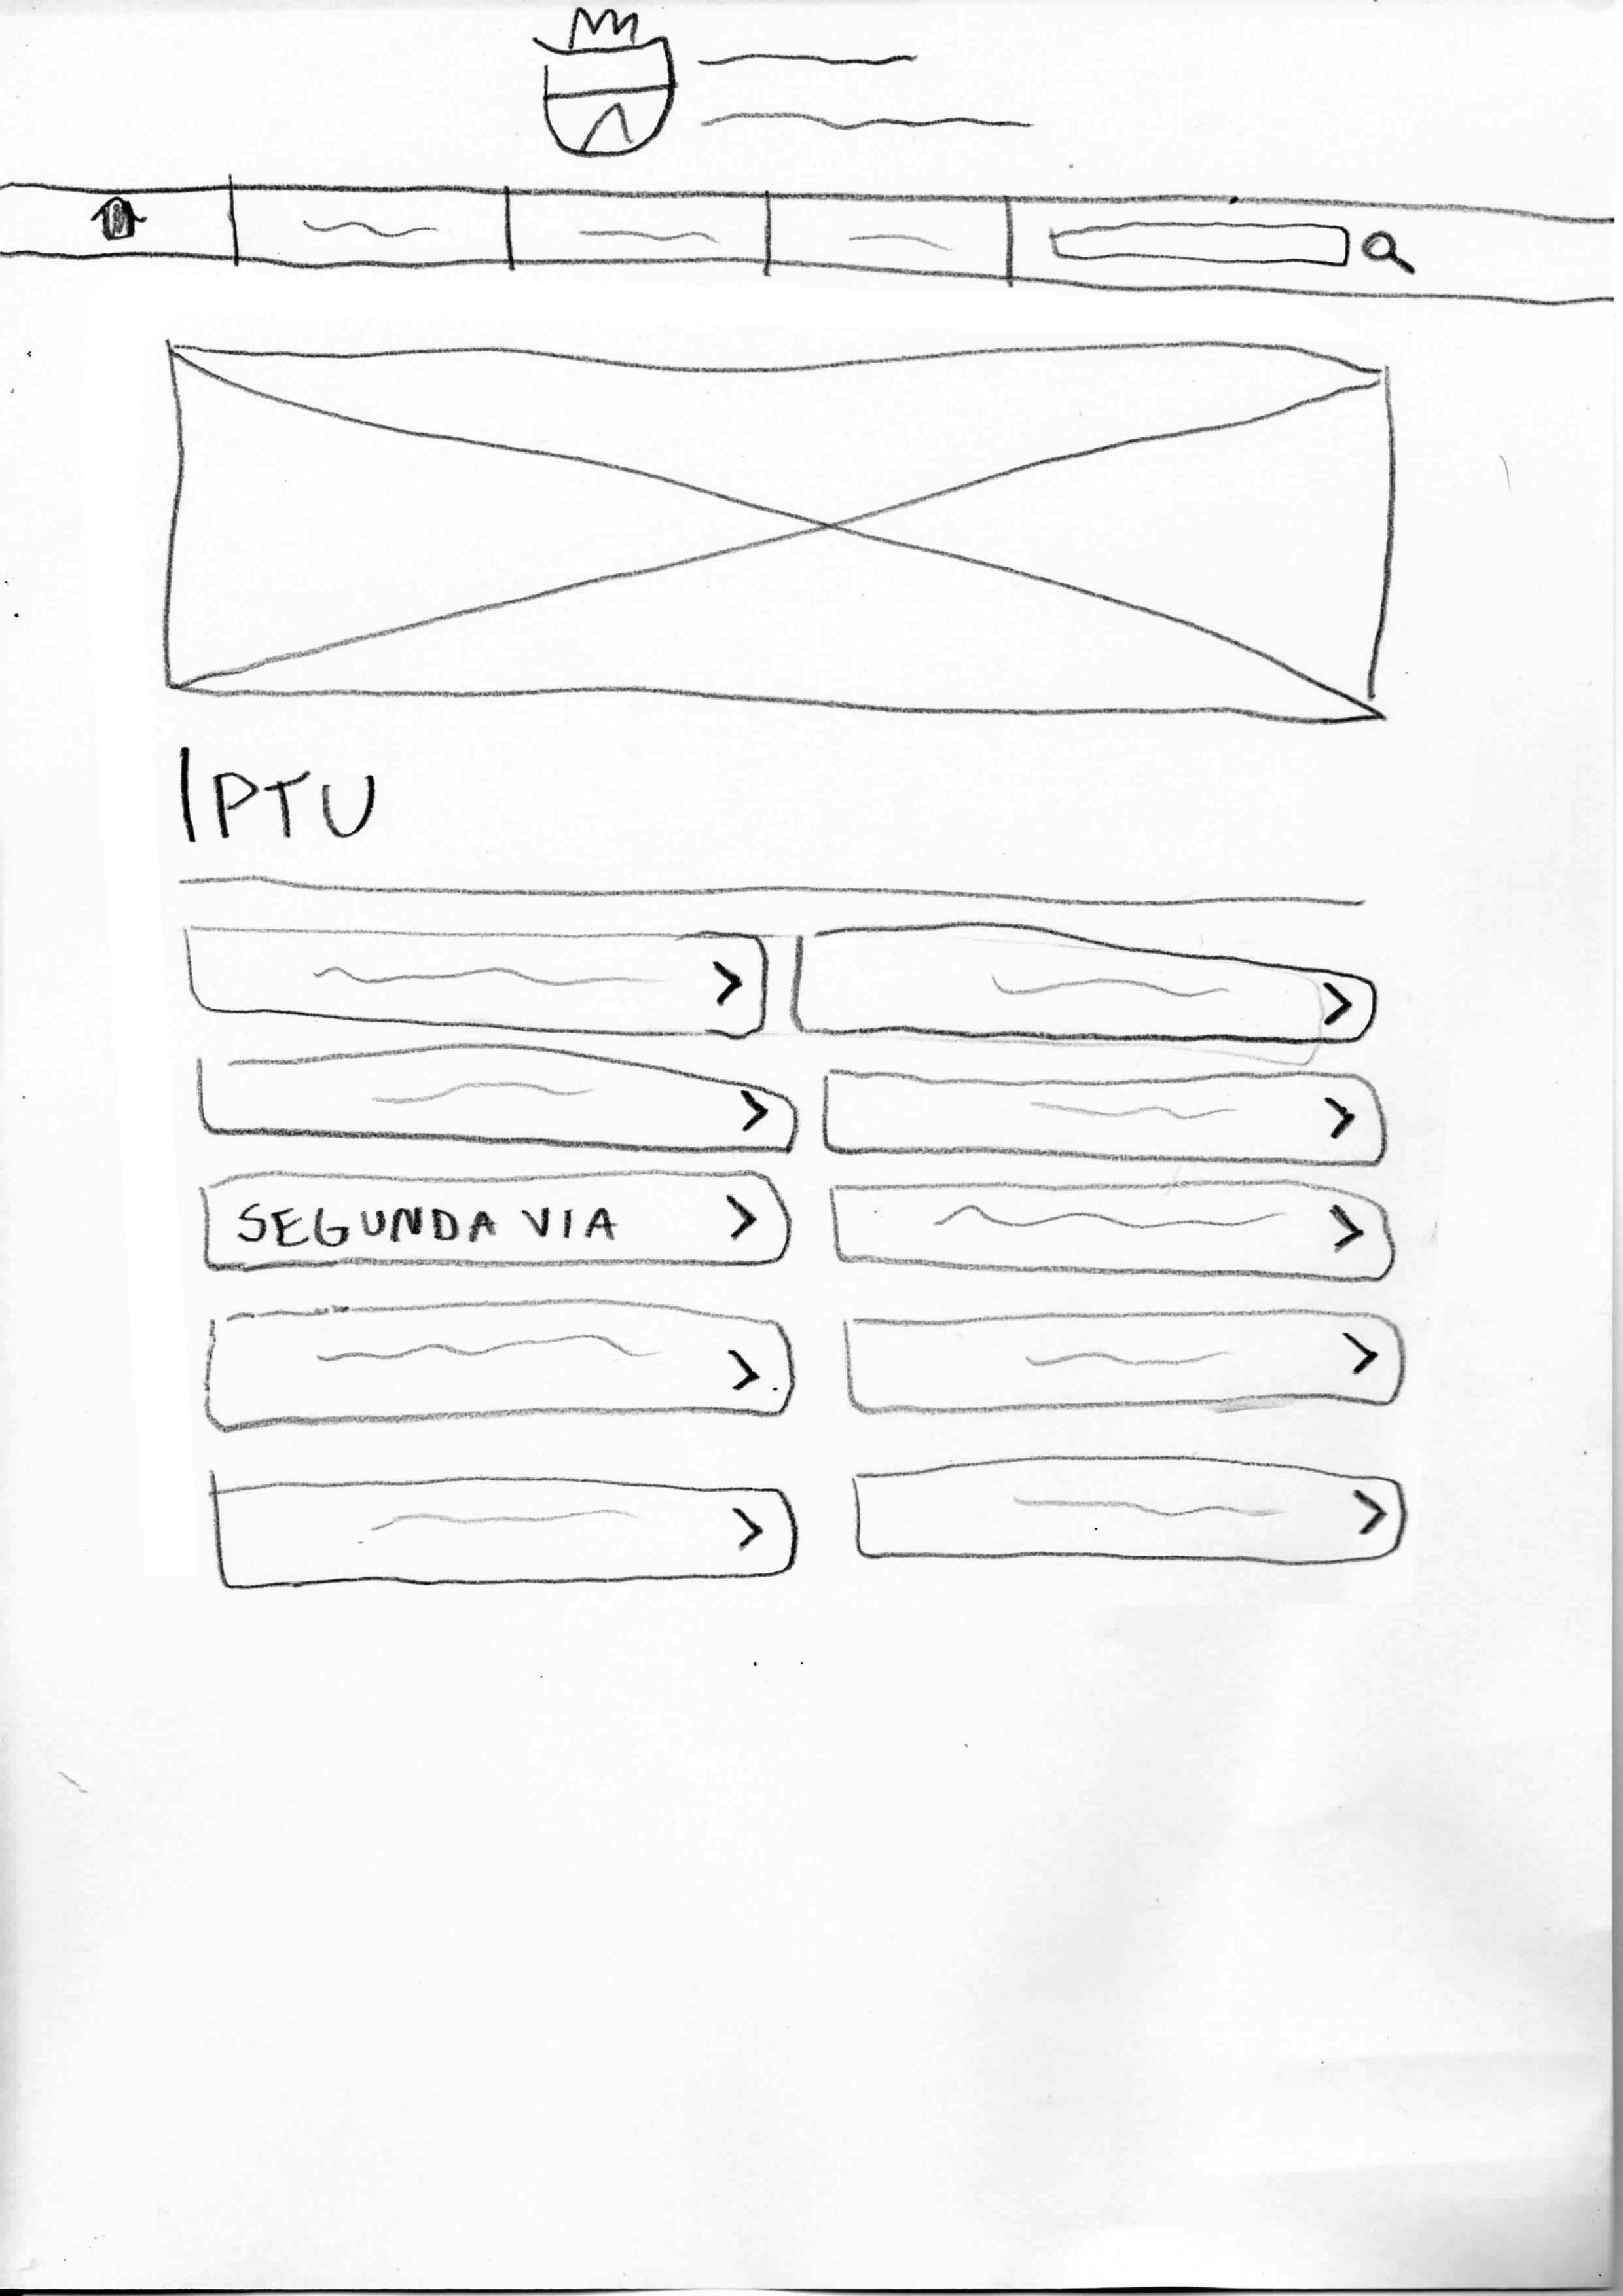 IPTU
SEGUNDA VIA